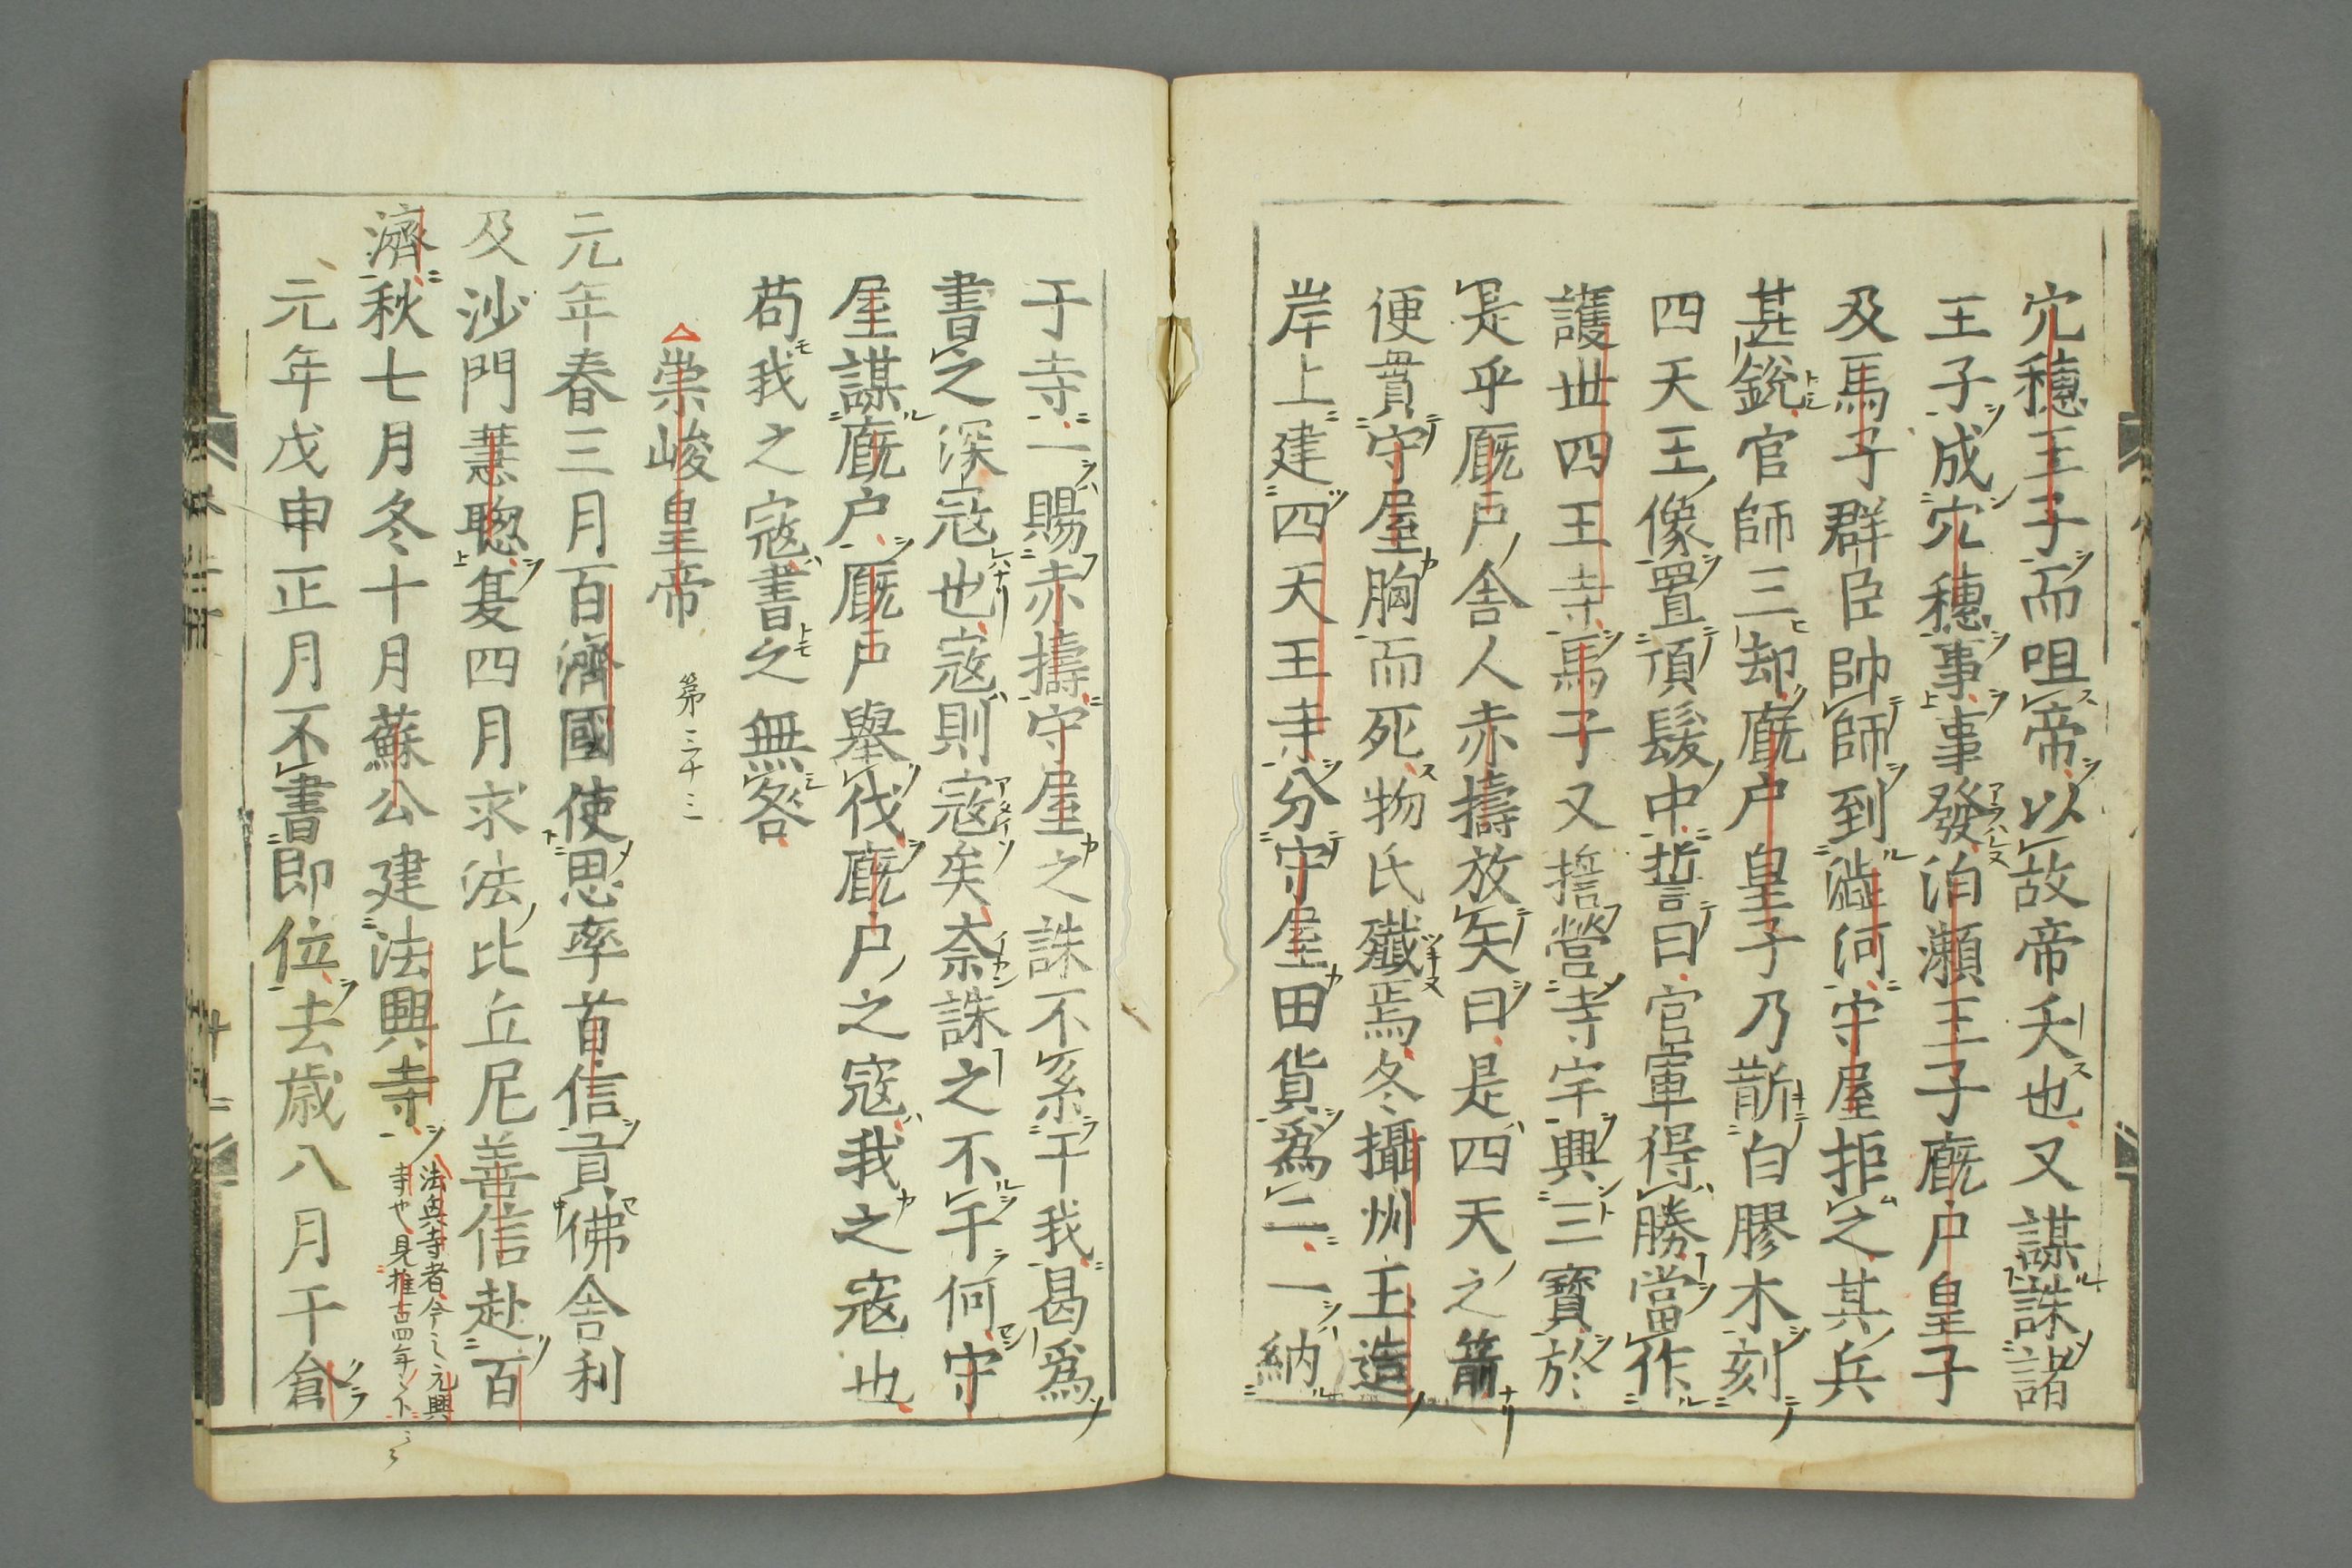 穴穗王子而咀帝以故帝夭也又謀誅諸
王子成穴穗事事發泊瀬王子廐户皇子
及馬子群臣帥師到澁河守屋拒之其兵
甚銳官師三却廐户皇子乃斮白膠木刻
四天王像置頂髮中誓曰官軍得勝當作
護世四王寺馬子又誓營寺宇興三寶於
是乎廐户舍人赤檮放矢曰是四天之箭
便貫守屋胸而死物氏殲焉冬攝州玉造
岸上建四天王寺分守屋田貨爲二一納
于寺一賜赤檮守屋之誅不系干我曷爲
書之深寇也寇則寇矣奈誅之不干何守
屋謀廐户廐户舉伐廐户之寇我之寇也
苟我之寇書之無咎
崇峻皇帝 第三十三
元年春三月百濟國使思率首信貢佛舍利
及沙門慧聰夏四月求法比丘尼善信赴百
濟秋七月冬十月蘇公建法興寺
法興寺者今之元興
寺也見推古四年下
元年戊申正月不書即位去歳八月干倉